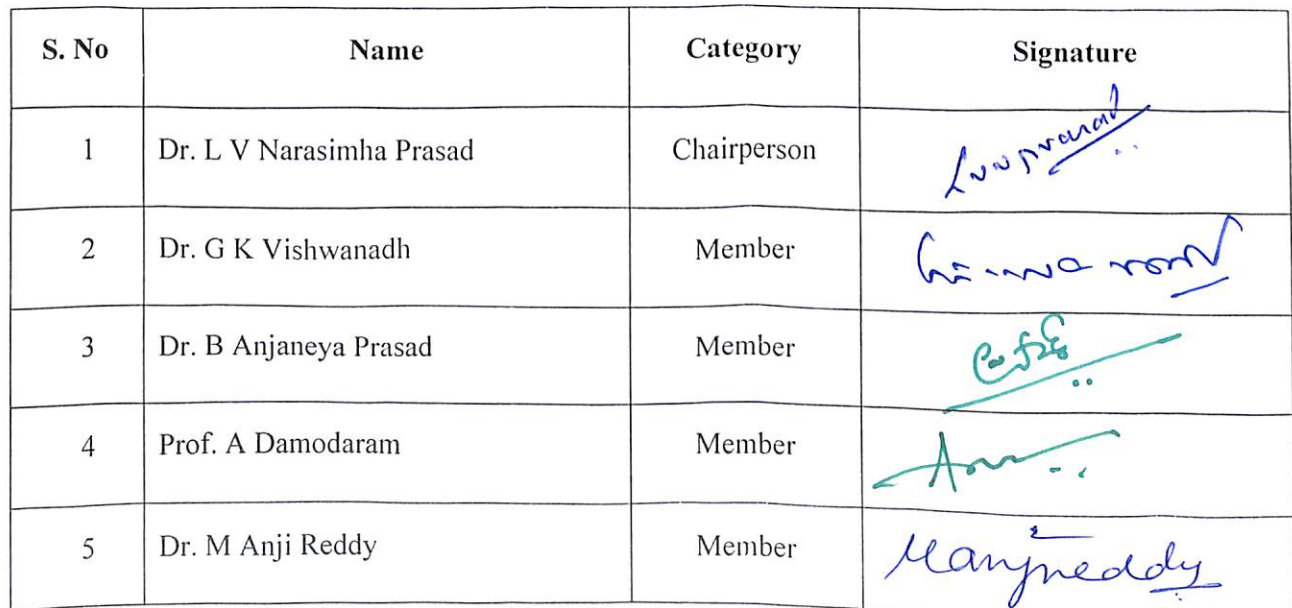 S. No Name Category Signature
1 Dr. L V Narasimha Prasad Chairperson
2 Dr. G K Vishwanadh Member
3 Dr. B Anjaneya Prasad Member
4 Prof. A Damodaram Member
5 Dr. M Anji Reddy Member Manjireddy